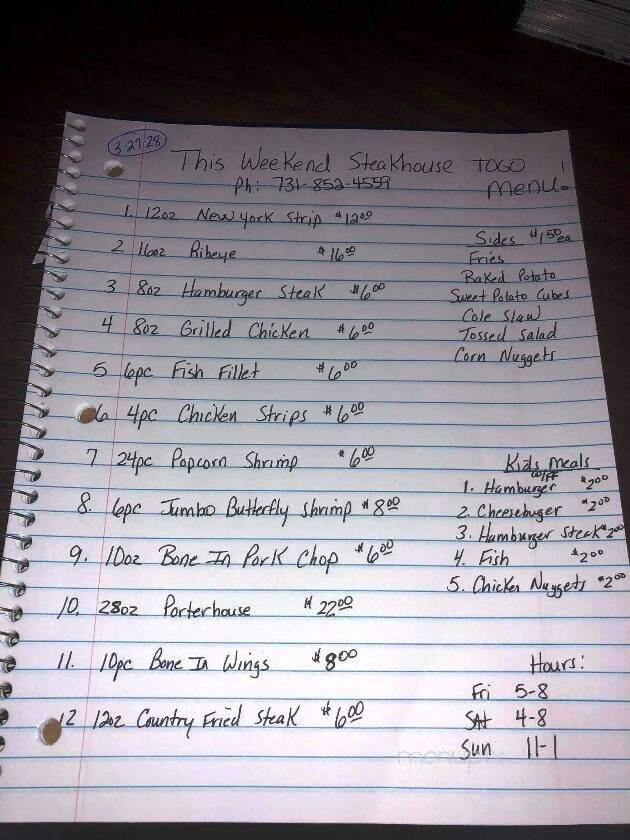 3-27-28
This Weekend Steakhouse TOGO
Ph: 731-852-4559 Menu.
1. 12oz New York Strip $12.00
2 16oz Ribeye $16.00
3 8oz Hamburger Steak $6.00
4 8oz Grilled Chicken $6.00
5 6pc Fish Fillet $6.00
6 4pc Chicken Strips $6.00
7 24pc Popcorn Shrimp $6.00
8. 6pc Jumbo Butterfly Shrimp $8.00
9. 10oz Bone In Pork Chop $6.00
10. 28oz Porterhouse $22.00
11. 10pc Bone In Wings $8.00
12 12oz Country Fried Steak $6.00
Sides $1.50 ea
Fries
Baked Potato
Sweet Potato Cubes
Cole Slaw
Tossed Salad
Corn Nuggets
Kids Meals
w/FF
1. Hamburger $2.00
2. Cheeseburger $2.00
3. Hamburger Steak $2.00
4. Fish $2.00
5. Chicken Nuggets $2.00
Hours:
Fri 5-8
SAt 4-8
Sun 11-1